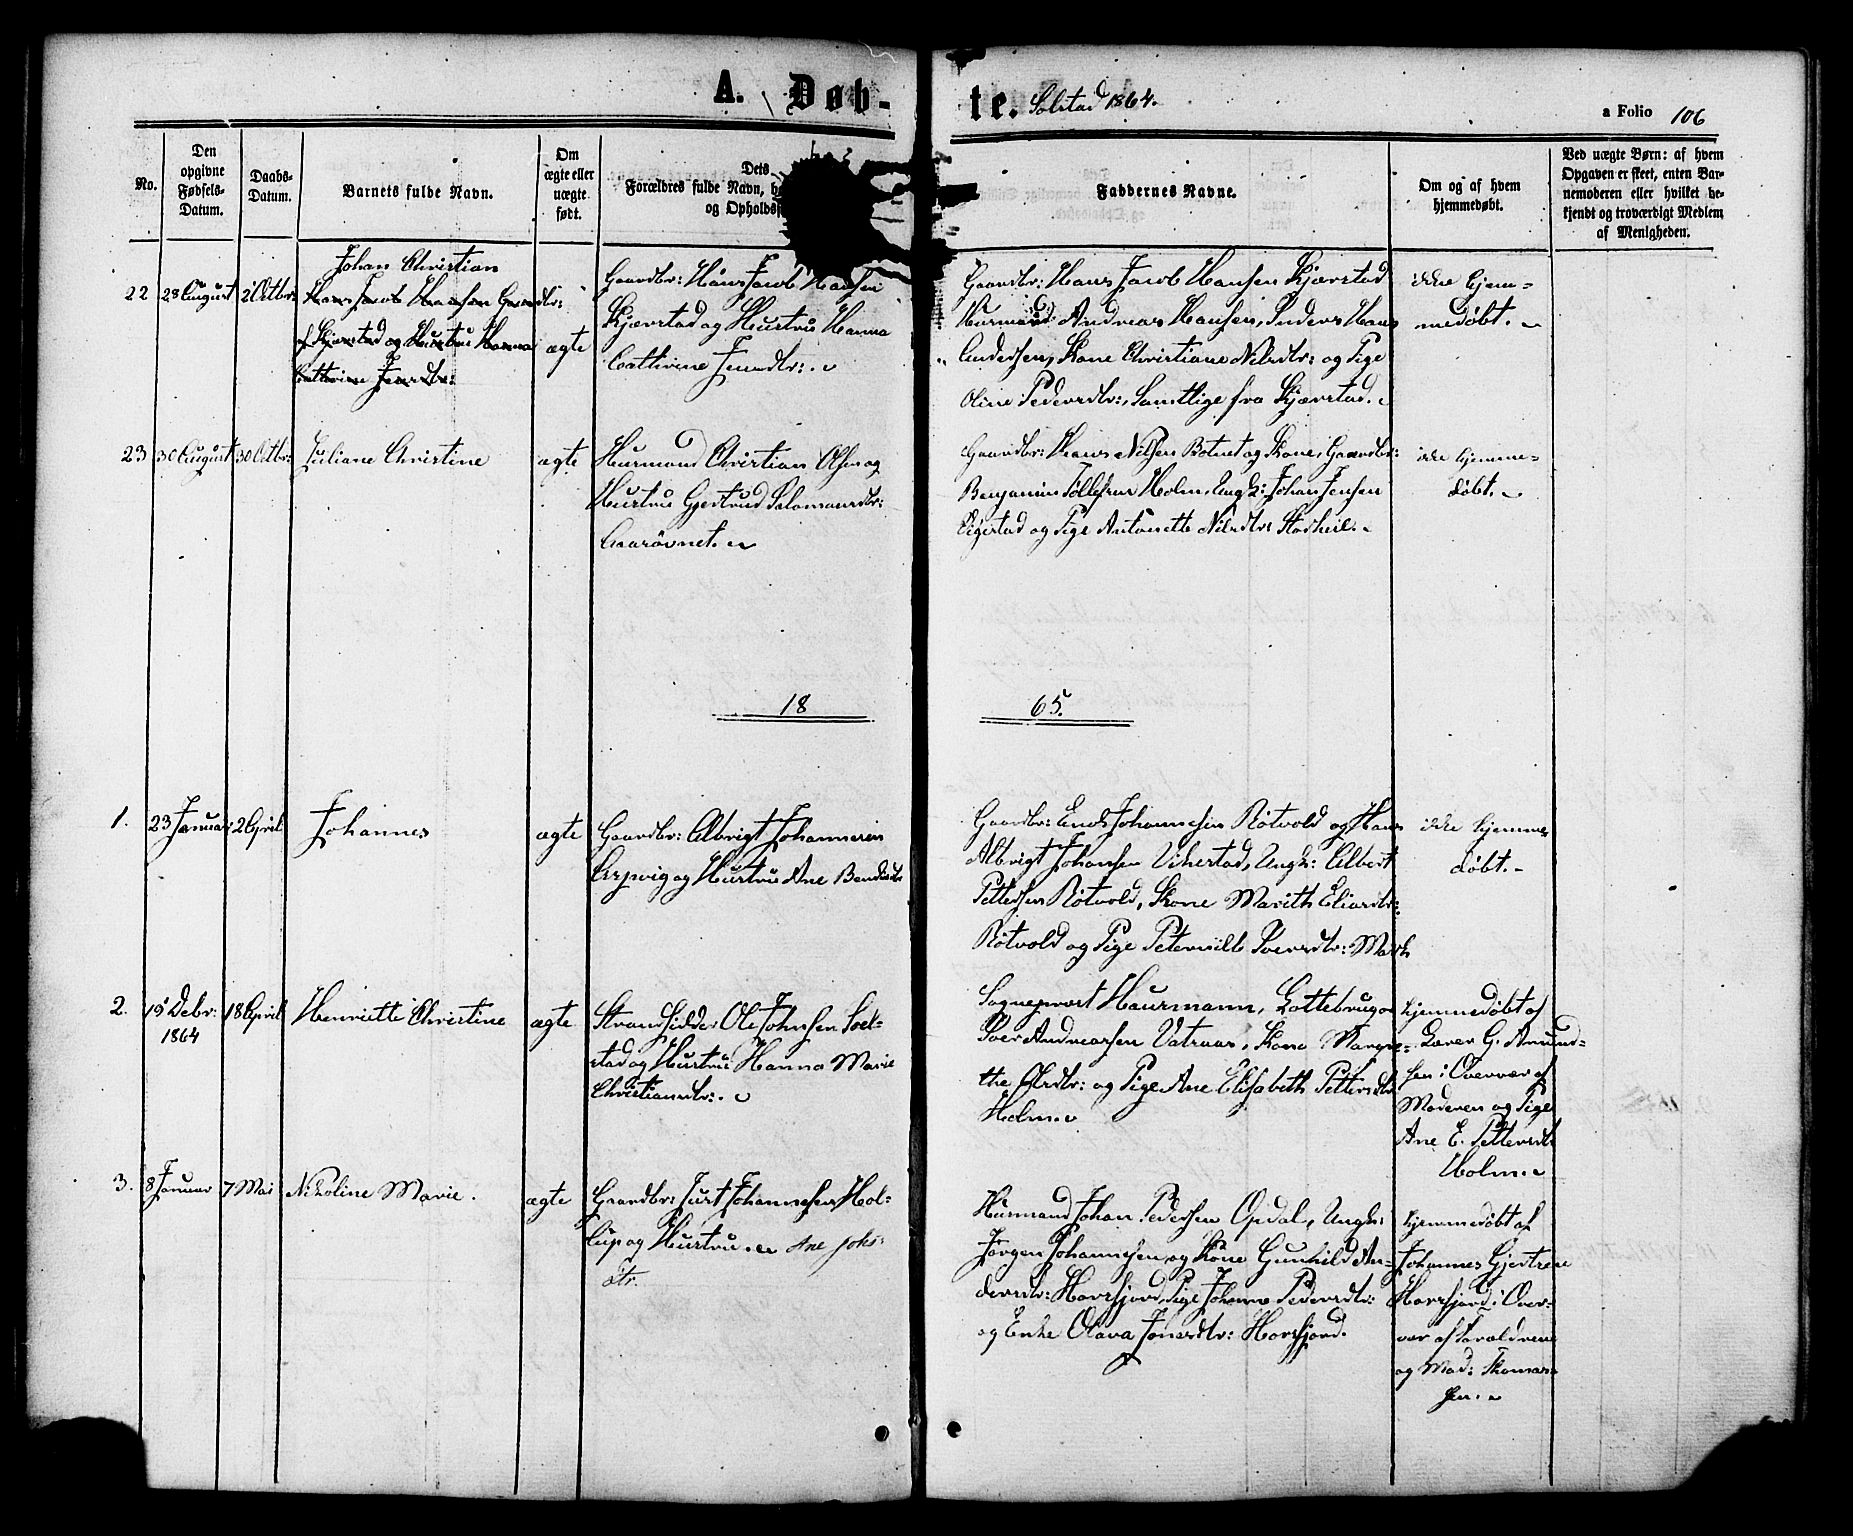 A. Døb-
te. Solstad 1864.
a Folio 106
No.
Den
opgivne
Fødsels-
Datum.
Daabs-
Datum.
Barnets fulde Navn.
Om
ægte eller
uægte
født.
Dets
Forældres fulde Navn,
og Opholds
Faddernes Navne.
Om og af hvem
hjemmedøbt.
Ved uægte Børn: af hvem
Opgaven er skeet, enten Bar-
nemoderen eller hvilket be-
kjendt og troværdigt Medlem
af Menigheden.
22
28 August
2 Octbr:
Johan Christian
Hans Jacob Hansen Gaardbr:
Skjærstad og Hustru Hanna
Cathrine Jensdtr:
ægte
Gaardbr: Hans Jacob Hansen
Skjærstad og Hustru Hanna
Cathrine Jensdtr:
Gaardbr: Hans Jacob Hansen Skjærstad
Husmand: Andreas Hansen, Inders Hans
Andersen, Kone Christiane Nilsdtr: og Pige
Oline Pedersdtr:, Samtlige fra Skjærstad.
ikke hjem-
medøbt.
23
30 August
30 Octbr:
Juliane Christine
ægte
Husmand Christian Olsen og
Hustru Gjertrud Salomonsdtr:
Aarsøvnet.
Gaardbr: Hans Nilsen Botnet og Kone, Gaardbr:
Benjamin Tollefsen Holm, Ungk: Johan Jensen
og Pige Antonette Nilsdtr:
ikke hjemme-
døbt.
18
65.
1.
23 Januar
2 April
Johannes
ægte
Gaardbr: Albrigt Johannesen
og Hustru Ane
Gaardbr: Johannesen Røtvold og Hans
Albrigt Johansen Vikestad, Ungk: Albert
Pettersen Røtvold, Kone Marith Eliasdtr:
Røtvold og Pige Peternille
ikke hjemme-
døbt.
2.
19 Debr:
1864
18 April
Henriette Christine
ægte
Strandsidder Ole Johnsen Sol-
stad og Hustru Hanna Marie
Christiansdtr:
Sogneprest Haurmann,
Andreassen Vatnaas, Kone Margre-
the Olsdtr: og Pige Ane Elisabeth Pettersdtr
Holm.
hjemmedøbt af
Lærer G. Amund-
sen i Overvær af
Moderen og Pige
Ane E. Pettersdtr
Holm.
3.
8 Januar
7 Mai
Nikoline Marie.
ægte
Gaardbr: Just Johannesen Hol-
og Hustru Ane Johs:
dtr.
Husmand Johan Pedersen Opdal, Ungk:
Jørgen Johannesen, og Kone Gunhild An-
dersdtr: Horsfjord, Pige Johanna Pedersdtr:
og Enke Olava Jonsdtr: Horsfjord.
hjemmedøbt af
Johannes
Horsfjord i Over-
vær af Forældrene
og Mad: Thomas-
sen.